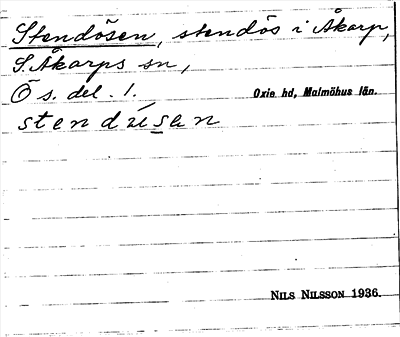 Stendösen, stendös i Åkarp,
S. Åkarps sn,
Ö s. del. 1. Oxie hd, Malmöhus län.
stendúsen
NILS NILSSON 1936.